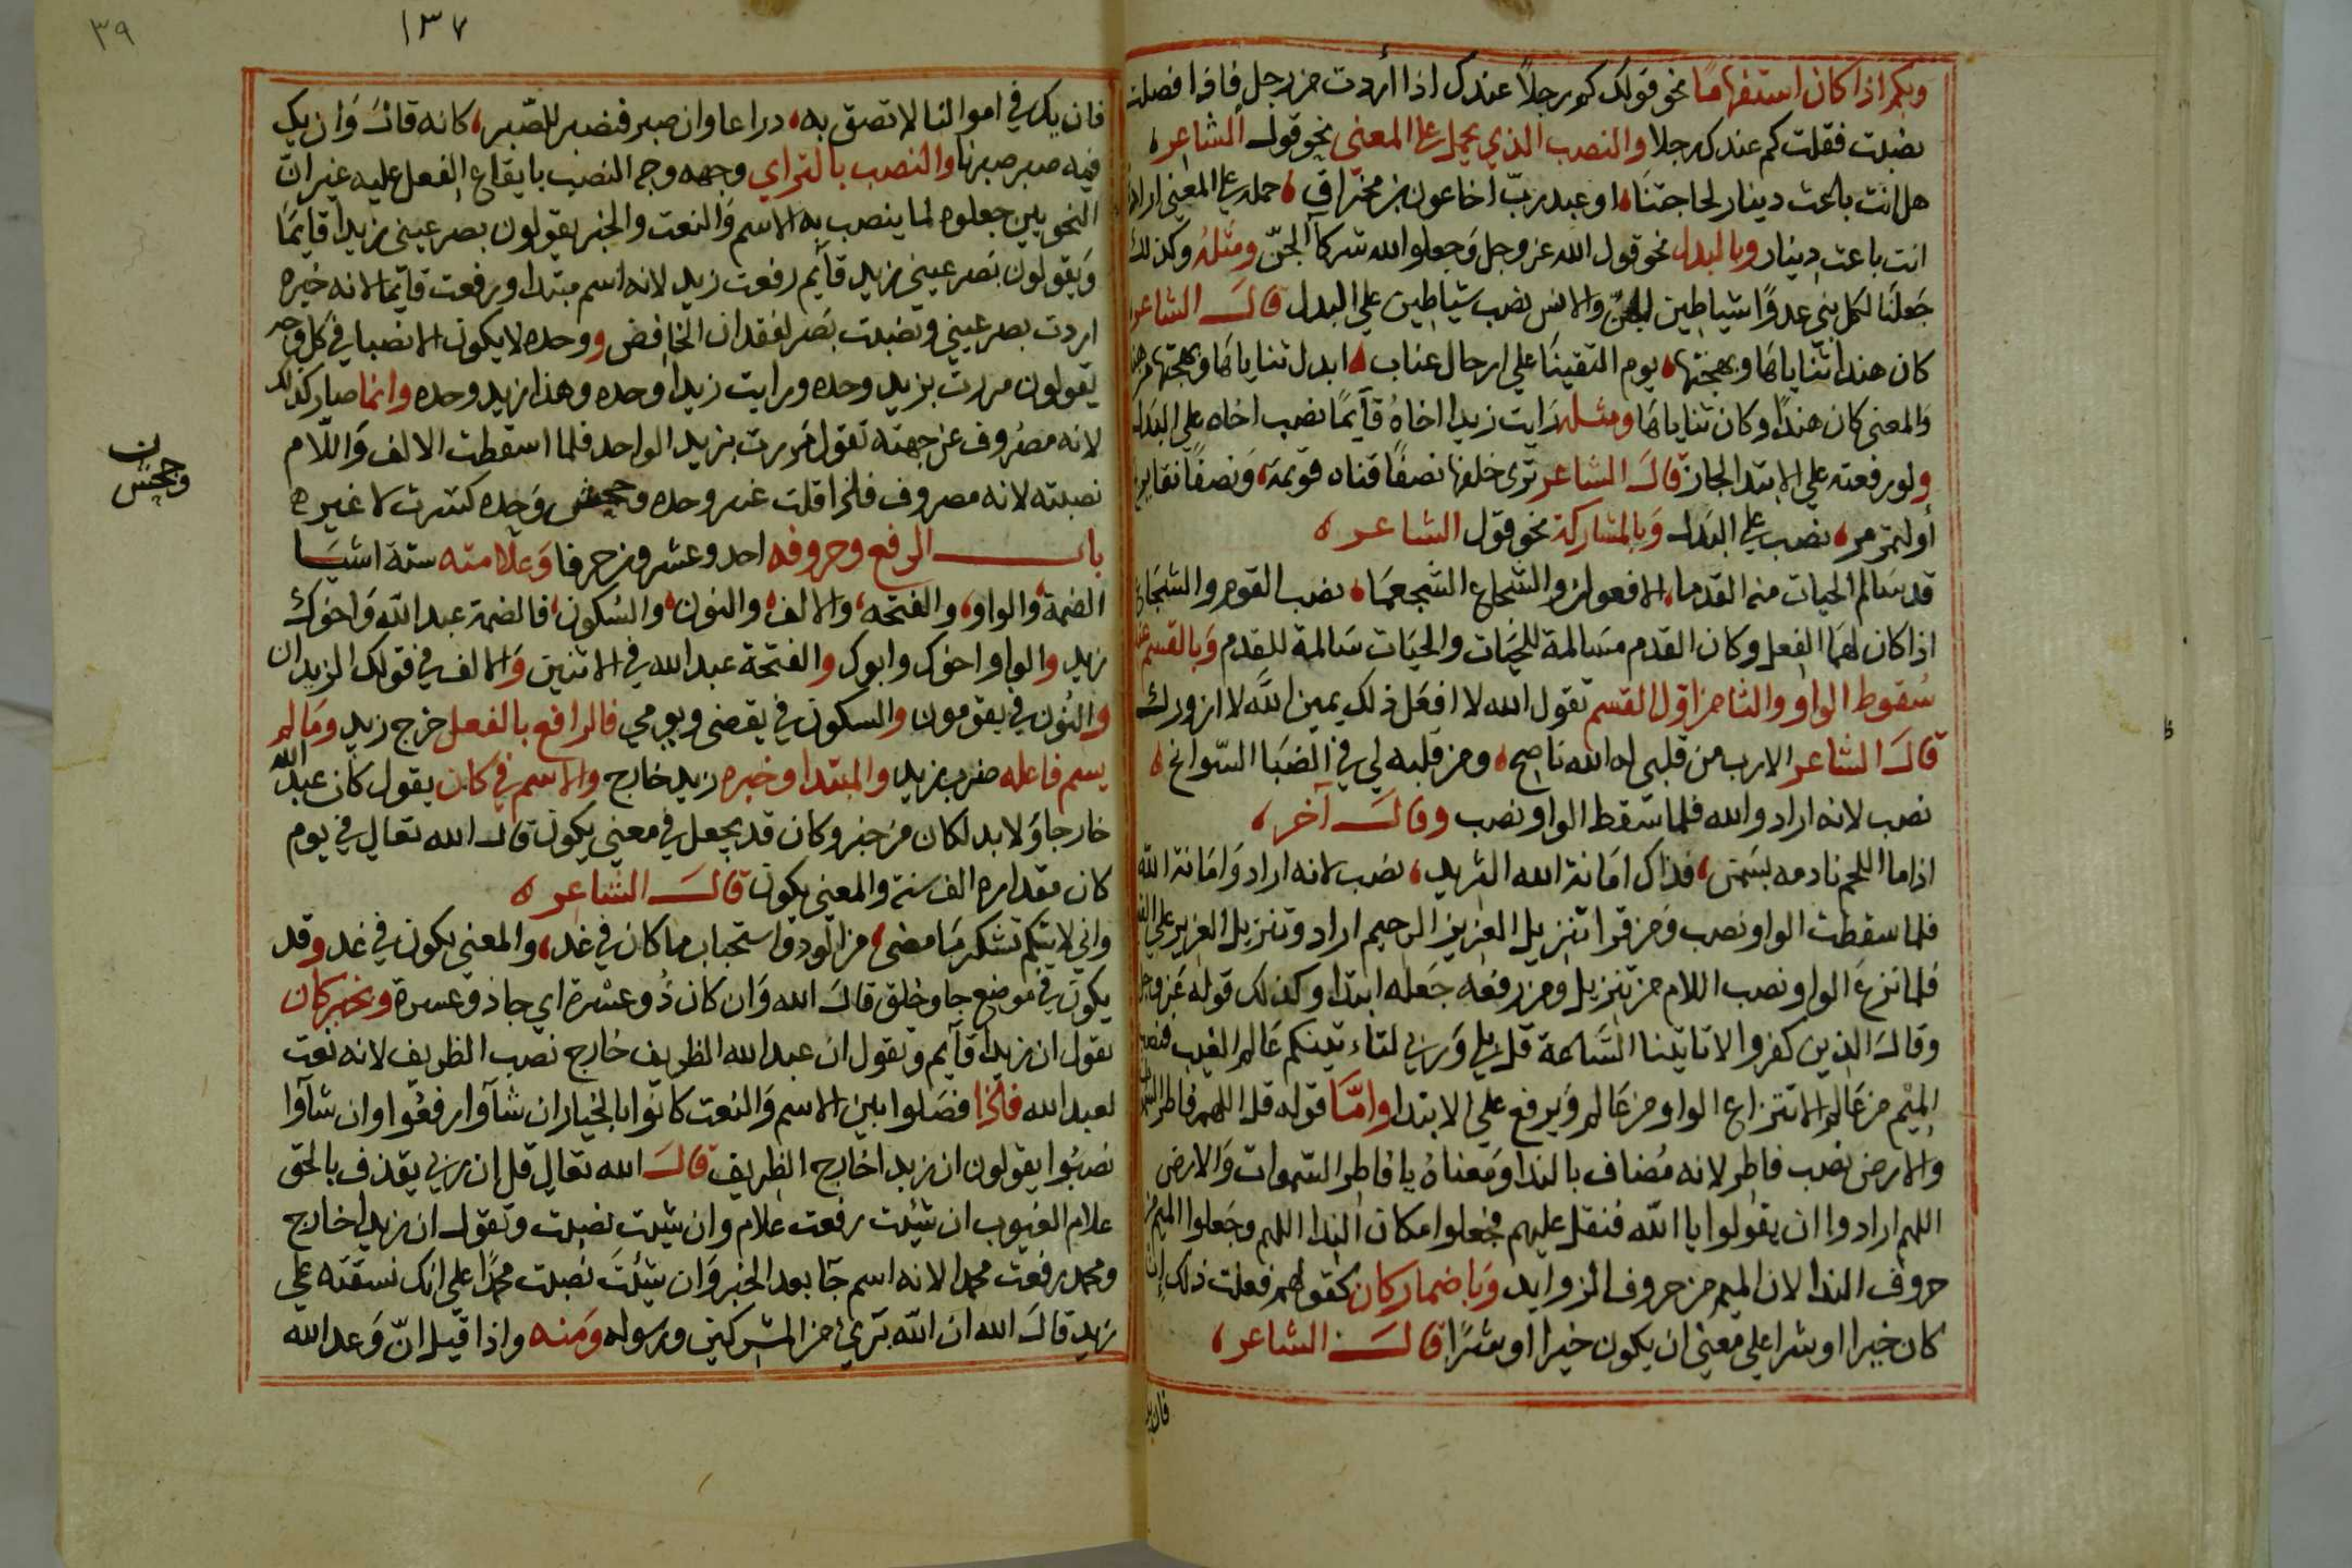 وبكم اذا كان استفهاما نحو قولك كم رجلاً عندك اذا أردت من رجل فاذا فصلت
نصبت فقلت كم عندك رجلا والنصب الذي يحمل على المعنى نحو قول الشاعر
هل انت باعث دينار لحاجتنا او عبد ربّ اخا عون بن مخراق حمله على المعنى اراد
انت باعث دينار وبالبدل نحو قول الله عز وجل وجعلوا الله شركآ الجنّ ومثله وكذلك
جعلنا لكل نبي عدوًا شياطين الجن والانس نصب شياطين علي البدل قال الشاعر
كان هندا ثناياها وبهجتها يوم التقينا علي ارحال عناب ابدل ثناياها وبهجتها من هند
والمعنى كان هندًا وكان ثناياها ومثله رايت زيدا اخاهُ قآيمًا نصب اخاه على البدل
ولو رفعته علي الابتدا لجاز قال الشاعر ترى خلفها نصفًا قناه قويمة ونصفًا نقا
أو يتمرمر نصب على البدل وبالمشاركة نحو قول الشاعر
قد سالم الحيات منه القدما الافعوان والشجاع الشجعما نصب القوم والشجاع
اذا كان لهما الفعل وكان القدم مسالمة للحيات والحيات سالمة للقدم وبالقسم عند
سقوط الواو والثا من اول القسم تقول الله لا افعل ذلك يمين الله لا ازورك
قال الشاعر الا رب من قلبى له الله ناصح ومن قلبه لي في الضبا السوانح
نصب لانه اراد والله فلما سقط الواو نصب وقال آخر
اذا ما اللحم نادمه بسمن فذاك امانة الله الثريد نصب لانه اراد وامانة الله
فلما سقطت الواو نصب ومن قرا تنزيل العزيز الرحيم اراد وتنزيل العزيز على
فلما نزع الواو نصب اللام من تنزيل ومن رفعه جعله ابتدا وكذلك قوله عز وجل
وقال الذين كفروا لا تاتينا الساعة قل بلي وربي لتاءتينكم عالم الغيب فنصب
الميم من عالم لانتزاع الواو من عالم ويرفع علي الابتدا وامّا قوله قل اللهم فاطر السموات
والارض نصب فاطر لانه مُضاف بالندا ومعناهُ يا فاطر السموات والارض
اللهم ارادوا ان يقولوا يا اللّه فنقل عليهم فجعلوا مكان الندا اللهم وجعلوا الميم من
حروف الندا لان الميم من حروف الزوايد وباضمار كان كقولهم فعلت ذلك إن
كان خيرا او شرا علي معنى ان يكون خيرا او شرًا قال الشاعر
فان يك
٣٩
١٣٧
فان يك في اموالنا لا تضق به دراعا وان صبر فنصبر للصّبر كانه قال وان يك
فيه صبر صبرنا والنصب بالتراي وجهه وجه النصب بايقاع الفعل عليه غير انّ
النحويين جعلوه لما ينصب به الاسم والنعت والخبر يقولون بصر عيني زيدا قايما
ويقولون بصر عيني زيد قآيم رفعت زيد لانه اسم مبتدا ورفعت قآيما لانه خبره
اردت بصر عيني ونصبت بصر لفقدان الخافض ووحده لا يكون الا نصبا في كل وجه
تقولون مررت بزيد وحده ورايت زيدا وحده وهذا زيد وحده وانما صار كذلك
لانه مصروف عن جهته تقول مررت بزيد الواحد فلما اسقطت الالف واللّام
نصبته لانه مصروف فلذا قلت غير وحده وجحيش وحده كسرت لا غيره
وجحيش ن
باب الرفع وحروفه احد وعشرون حرفا وعلامته ستة اشيا
الضمة والواو والفتحه والالف والنون والسكون فالضمة عبد اللّه واخوك
زيد والواو اخوك وابوك والفتحة عبد الله في الاثنين والالف في قولك الزيدان
والنون في يقومون والسكون في يقضى ويرمي فالرافع بالفعل خرج زيد وما لم
يسم فاعله ضرب زيد والمبتدا وخبره زيد خارج والاسم في كان يقول كان عبد اللّه
خارجا ولا بد لكان من خبر وكان قد يجعل في معنى يكون قال الله تعالي في يوم
كان مقداره الف سنة والمعنى يكون قال الشاعر
واني لايتكم تشكر ما مضى من الودّ واستحباب ما كان في غد والمعنى يكون في غد وقد
يكون في موضع جا وخلق قال الله وان كان ذُو عشرة اي جا ذو عسرة ونخبر كان
تقول ان زيدا قآيم وتقول ان عبد الله الظريف خارج نصب الظريف لانه نعت
لعبد الله فلذا فصلوا بين الاسم والنعت كانوا بالخيار ان شآوا رفعُوا وان شآوا
نصبُوا يقولون ان زيدا خارج الظريف قال الله تعالي قل ان ربي يقذف بالحق
علام الغيوب ان شيئت رفعت علام وان شيئت نصبت وتقول ان زيدا خارج
ومحمد رفعت محمدا لانه اسم جا بعد الخبر وان شيئت نصبت محمدًا على انك نسقته علي
زيد قال الله ان اللّه بريءٌ من المشركين ورسوله ومنه واذا قيل انّ وعد الله